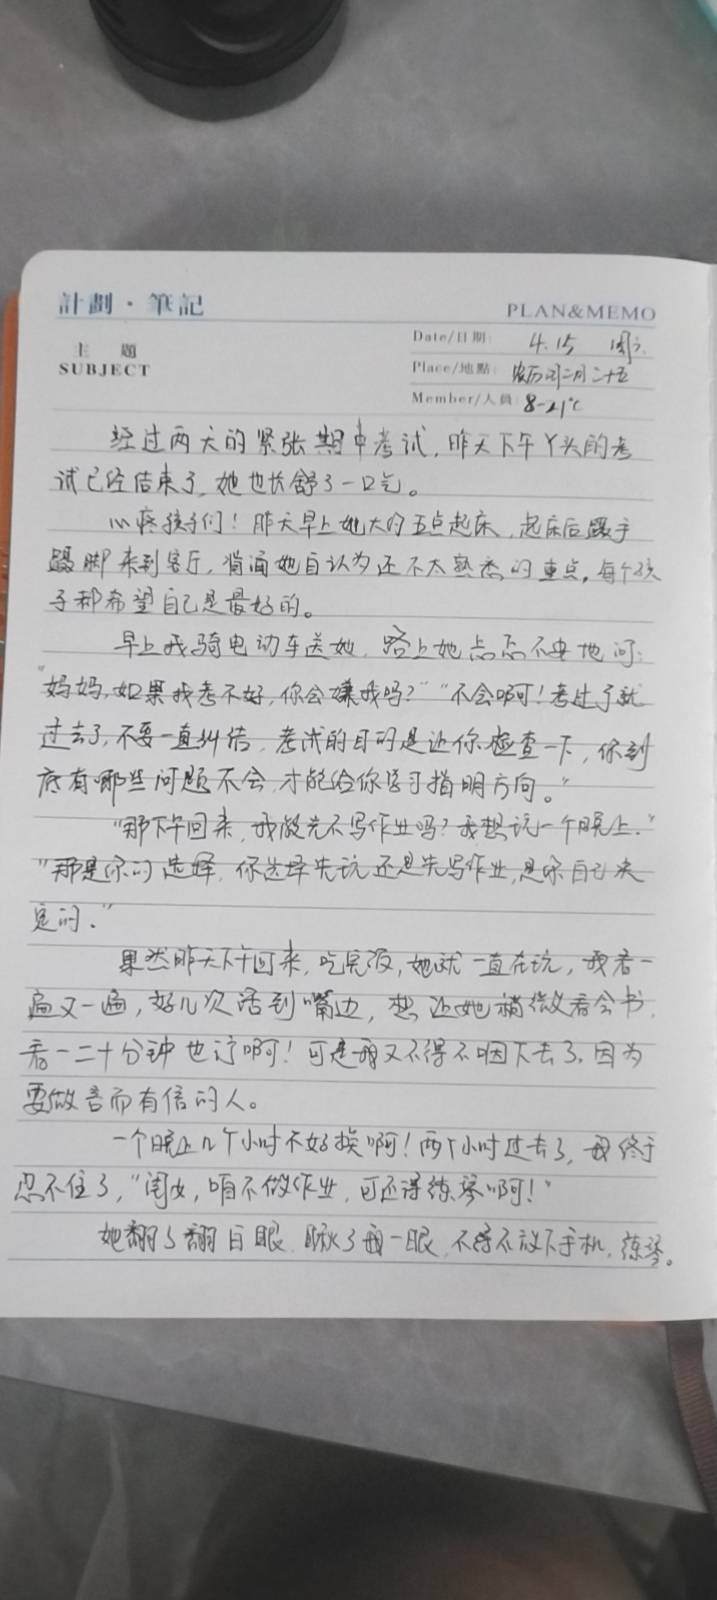 計劃·筆記
PLAN&MEMO
主 題
SUBJECT
Date/日期: 4.15 周六
Place/地點: 农历闰二月二十五
Member/人員: 8-21℃
经过两天的紧张期中考试,昨天下午丫头的考
试已经结束了,她也长舒了一口气。
心疼孩子们!昨天早上她大约五点起床,起床后蹑手
蹑脚来到客厅,背诵她自认为还不太熟悉的重点,每个孩
子都希望自己是最好的。
早上我骑电动车送她,路上她忐忑不安地问:
"妈妈,如果我考不好,你会嫌我吗?""不会啊!考过了就
过去了,不要一直纠结,考试的目的是让你检查一下,你到
底有哪些问题不会,才能给你学习指明方向。"
"那下午回来,我能先不写作业吗?我想玩一个晚上."
"那是你的选择,你选择先玩还是先写作业,是你自己决
定的."
果然昨天下午回来,吃完饭,她就一直在玩,我看一
遍又一遍,好几次话到嘴边,想让她稍微看会书,
看一二十分钟也行啊!可是我又不得不咽下去了,因为
要做言而有信的人。
一个晚上几个小时不好挨啊!两个小时过去了,我终于
忍不住了,"闺女,咱不做作业,可还得练琴啊!"
她翻了翻白眼,瞅了我一眼,不得不放下手机,练琴。